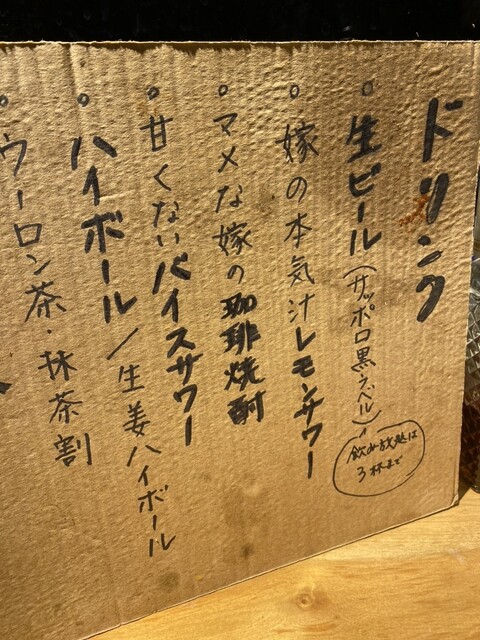 ドリンク
○生ビール(サッポロ黒ラベル)
飲み放題は
3杯まで
○嫁の本気汁レモンサワー
○マメな嫁の珈琲焼酎
○甘くないバイスサワー
○ハイボール/生姜ハイボール
○ウーロン茶・抹茶割